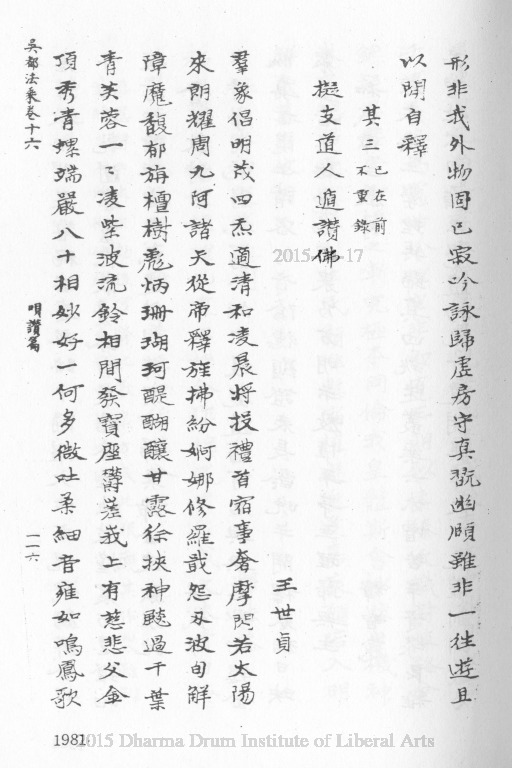 形非我外物固已寂吟詠歸虛房守真翫幽賾雖非一往遊且
以閑自釋
其三已在前不重錄
擬支道人遁讚佛
王世貞
羣象倡明茂四炁適清和凌晨將投禮首宿事奢摩閃若太陽
來朗耀周九阿諸天從帝釋旌拂紛婀娜修羅戢怨刃波旬解
障魔馥郁旃檀樹彪炳珊瑚珂醍醐釀甘露徐挾神飈過千葉
青芙蓉一々凌紫波流鈴相間發寶座鬱嵳峩上有慈悲父金
頂秀青螺端嚴八十相妙好一何多微吐柔細音雍如鳴鳳歌
吳都法乘卷十六
唄讚篇
一一六
1981
2015 Dharma Drum Institute of Liberal Arts